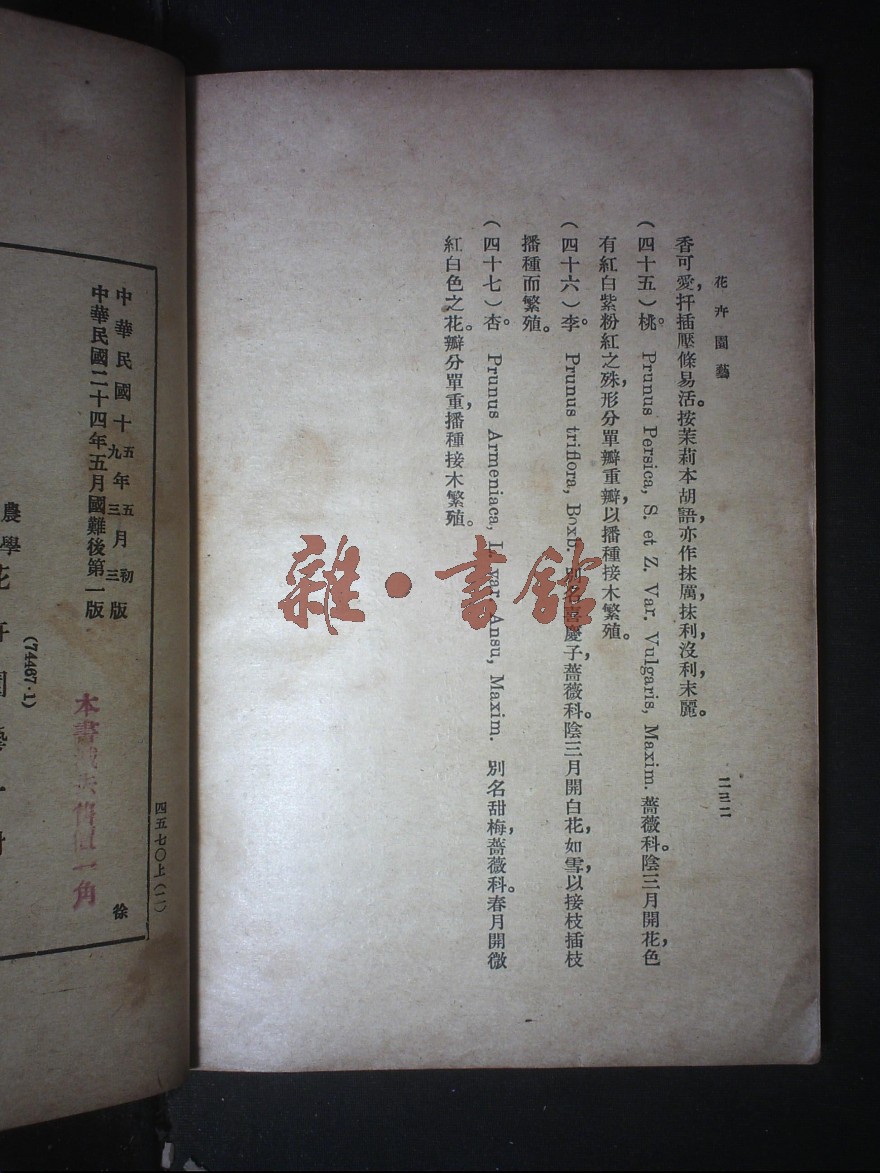 花卉園藝
二三二
香可愛,扞插壓條易活。按茉莉本胡語,亦作抹厲,抹利,沒利,末麗。
(四十五)桃。 Prunus Persica, S. et Z. Var. Vulgaris, Maxim. 薔薇科。陰三月開花,色
有紅白紫粉紅之殊,形分單瓣重瓣,以播種接木繁殖。
(四十六)李。 Prunus triflora, Roxb. 別名喜慶子,薔薇科。陰三月開白花,如雪,以接枝插枝
播種而繁殖。
(四十七)杏。 Prunus Armeniaca, L. var. Ansu, Maxim. 別名甜梅,薔薇科。春月開微
紅白色之花。瓣分單重,播種接木繁殖。
雜·書館
四五七〇上(二)
中華民國十五年五月初版
九 三 三
中華民國二十四年五月國難後第一版
徐
本書
一角
(74467·1)
農學
園藝一